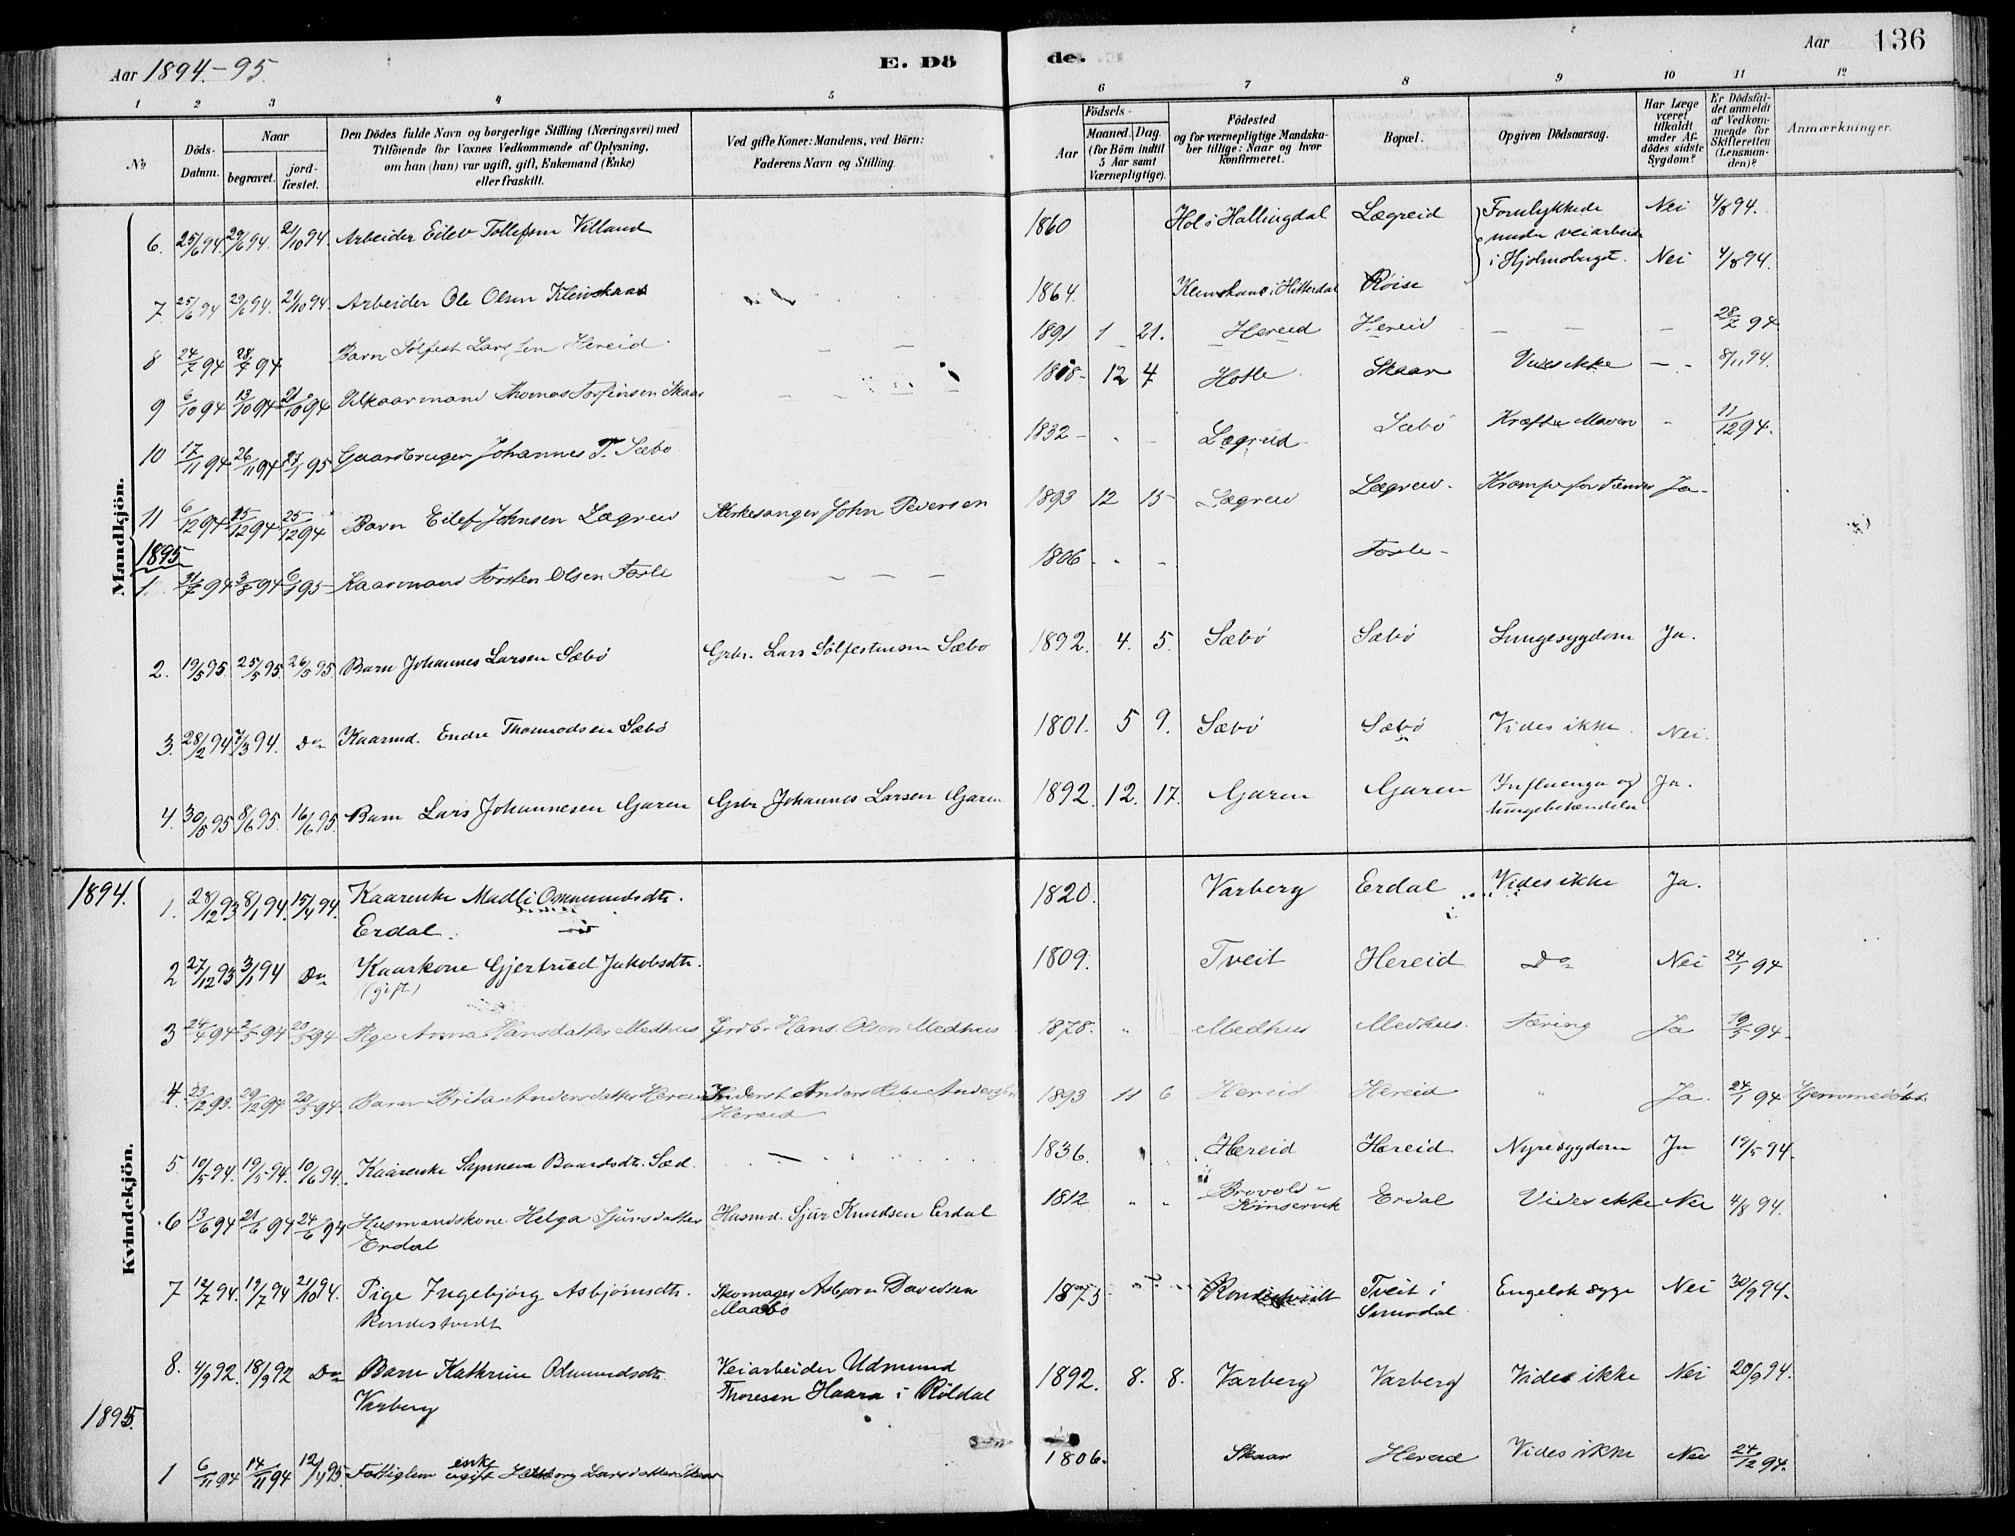 Aar 1894.-95. E. Dö de. Aar 136
1 2 3 4 5 6 7 8 9 10 11 12
No
Döds-Datum.
Naar
begravet.
jord-fæstet.
Den Dödes fulde Navn og borgerlige Stilling (Næringsvei) med
Tilföiende for Voxnes Vedkommende af Oplysning,
om han (hun) var ugift, gift, Enkemand (Enke)
eller fraskilt.
Ved gifte Koner: Mandens, ved Börn:
Faderens Navn og Stilling
Födsels-
Aar
Maaned. Dag.
(for Börn indtil
5 Aar samt
Værnepligtige).
Födested
og for værnepligtige Mandska-
ber tillige: Naar og hvor
konfirmeret.
Bopæl.
Opgiven Dödsaarsag.
Har Læge
været
tilkaldt
under Af-
dödes sidste
Sygdom?
Er Dödsfal-
det anmeldt
af Vedkom-
mende for
Skifteretten
(Lensman-
den)?
Anmærkninger.
Mandkjön.
6. 25/6 94. 29/6 94. 21/10 94. Arbeider Eilev Tollefsen Villand 1860 Hol i Hallingdal Lægreid Forulykkede Nei 4/8 94.
under veiarbeide
i Hjolmoberget. Nei 4/8 94.
7. 25/6 94 29/6 94. 21/10 94. Arbeider Ole Olsen Klevskaas 1864. i Hitterdal Røise
8 24/7 94 28/7 94 Barn Sølfest Larssen Hereid 1891 1 21. Hereid Hereid — — — 28/7 94
9 6/10 94 13/10 94 21/10 94 Vilkaarmand Thomas Torfinsen Skaar 1818- 12 4 Hotle Skaar Vides ikke — 8/11 94.
10 17/11 94 26/11 94 27/1 95 Gaardbruger Johannes T. Sæbø 1832 - Lægreid Sæbø Kræft i Maven - 11/12 94.
11 6/12 94 15/12 94 25/12 94 Barn Eilef Johnsen Lægreid Kirkesanger John Pedersen 1893 12 15 Lægreid Lægreid. Krampe for Tænder Ja-
1895
1. 31/7 94 3/8 94 6/1 95- Kaarmand Torsten Olsen Tosle 1806 - - Tosle -
2. 19/5 95. 25/5 95. 26/5 95. Barn Johannes Larsen Sæbø Grbr. Lars Sølfestensen Sæbø 1892. 4. 5. Sæbø Sæbø Lungesygdom Ja.
3. 28/2 94 7/3 94. Do Kaarmd. Endre Thormodsen Sæbø 1801. 5 9. Sæbø Sæbø Vides ikke. Nei.
4. 30/5 95 8/6 95. 16/6 95. Barn Lars Johannesen Garen Grbr Johannes Larsen Garen 1892. 12. 17. Garen Garen Influenza og Ja.
lungebetændelse
Kvindekjön.
1894.
1. 28/12 93 8/1 94. 15/4 94. Kaarenke Madli Osmundsdtr. 1820. Varberg Erdal Vides ikke Ja.
Erdal.
2 27/12 93 3/1 94 Do Kaarkone Gjertrud Jakobsdtr. 1809. Tveit Hereid Do Nei 24/1 94
(gift)
3 24/4 94 2/5 94 20/5 94 Pige Anna Hansdatter Medhus Grdbr Hans Olsen Medhus 1878. Medhus Medhus. Tæring Ja 19/5 94.
4. 23/12 93. 29/12 94 20/5 94. Barn Brita Andersdatter Hereid Inderst Anders Andersen 1893 11 6 Hereid Hereid " Ja. 24/1 94 Hjemmedøbt.
Hereid
5 10/5 94. 19/5 94. 10/6 94. Kaarenke Synneva Baardsdtr. Sæd. 1836. Hereid Hereid Nyresygdom Ja 19/5 94.
6 13/6 94 21/6 94 24/6 94 Husmandskone Helga Sjursdatter Husmd. Sjur Knudsen Erdal 1812 " " Brovold Erdal Vides ikke Nei 4/8 94.
Erdal Kinservik
7 12/7 94. 19/7 94 21/10 94. Pige Ingebjörg Asbjörnsdtr. Skomager Asbjorn Davidsen 1873 Rondestvedt Tveit i Engelsk syge Nei 30/9 94.
Rondestvedt Maabø Simodal
8. 4/9 92. 18/9 92 Do Barn Kathrine Odmundsdtr. Veiarbeider Udmund 1892. 8. 8. Varberg Varberg Vides ikke Nei 20/9 94.
Varberg Thoresen Haara i Røldal
1895.
1 6/11 94 14/11 94 12/4 95. Fattiglem enke
ugift Larsdatter Skaar 1806. Skaar Hereid Vides ikke Nei 24/12 94.